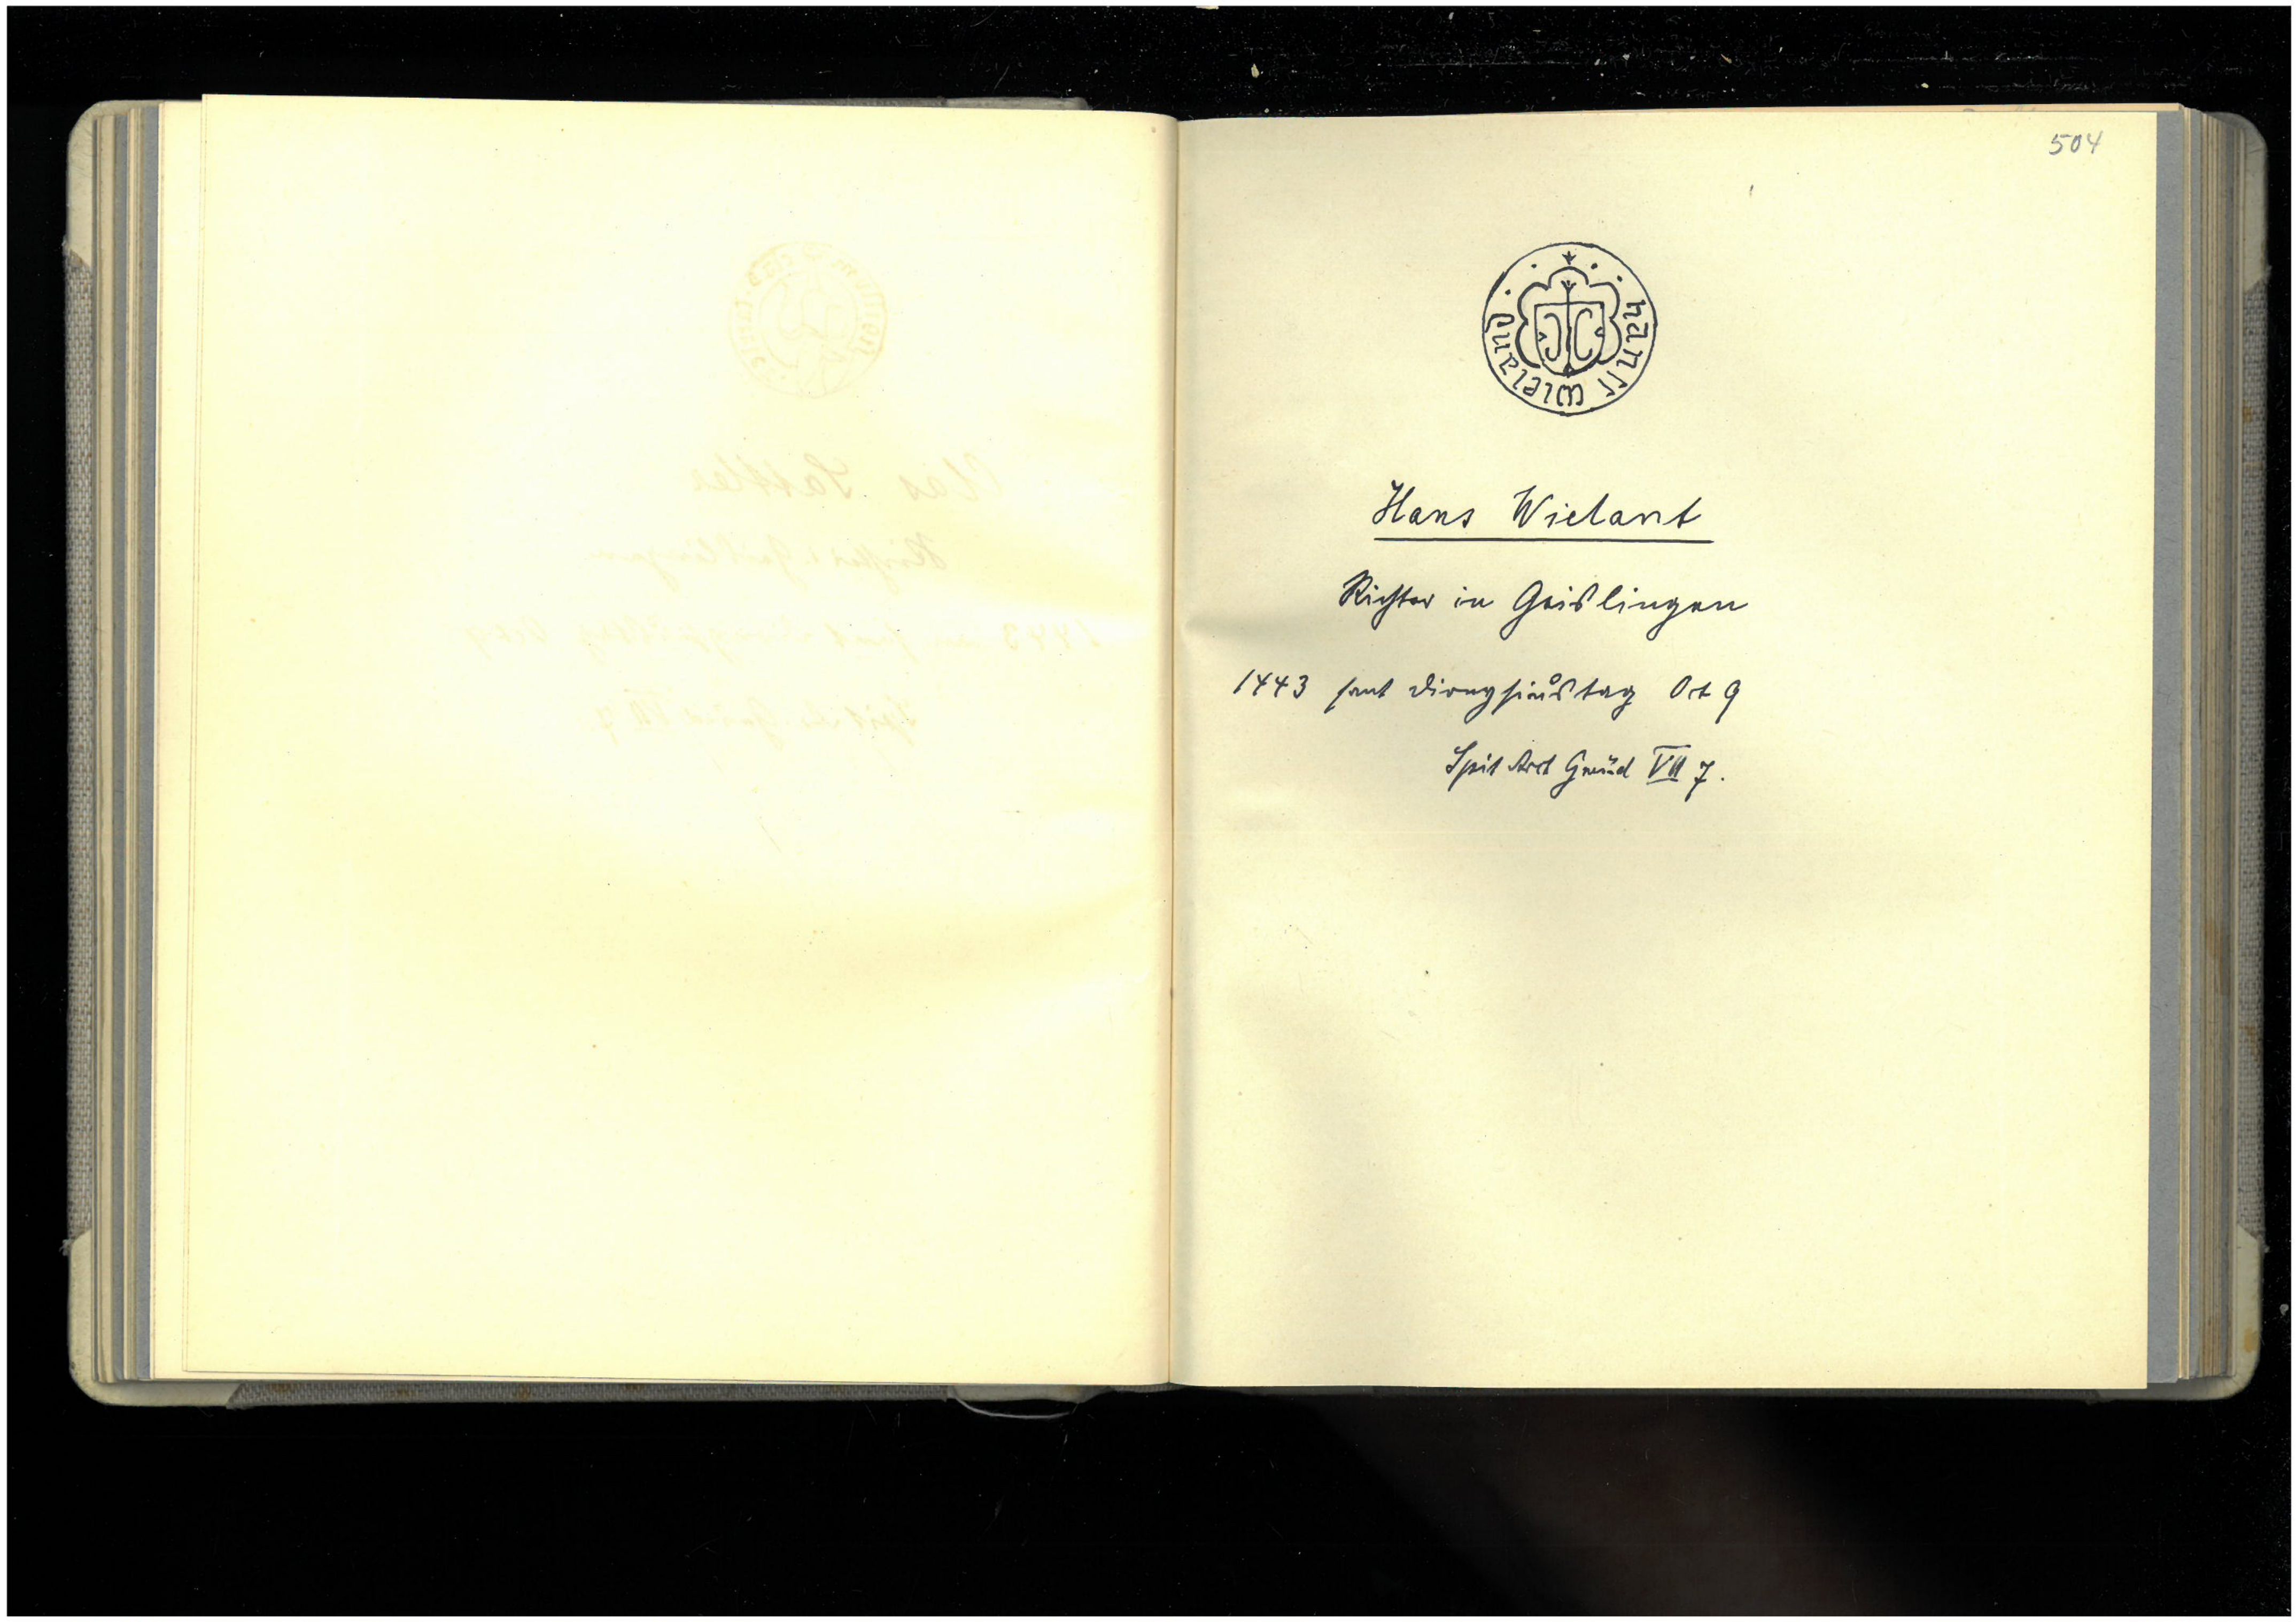 504
hanſſ wieland
Hans Wielant
Richter in Geislingen
1443 sant Dionysiůstag Oct 9
Spit Arch Gmünd VII 7.